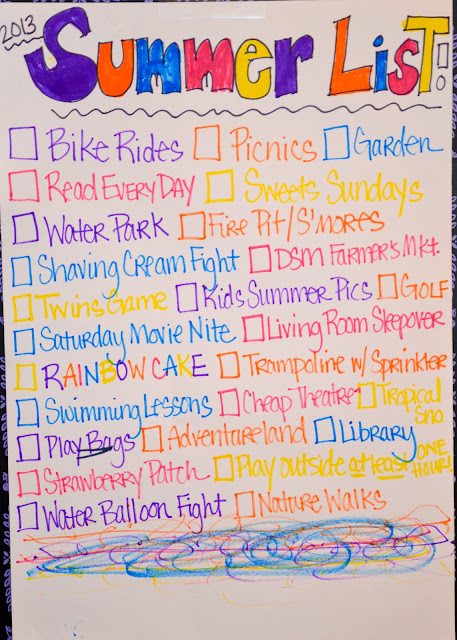 2013 Summer List!
Bike Rides Picnics Garden
Read Every Day Sweets Sundays
Water Park Fire Pit/S'mores
Shaving Cream Fight DSM Farmer's Mkt.
Twins Game Kids Summer Pics Golf
Saturday Movie Nite Living Room Sleepover
RAINBOW CAKE Trampoline w/ Sprinkler
Swimming Lessons Cheap Theatre Tropical Sno
Play Bags Adventureland Library
Strawberry Patch Play outside at least ONE HOUR!
Water Balloon Fight Nature Walks